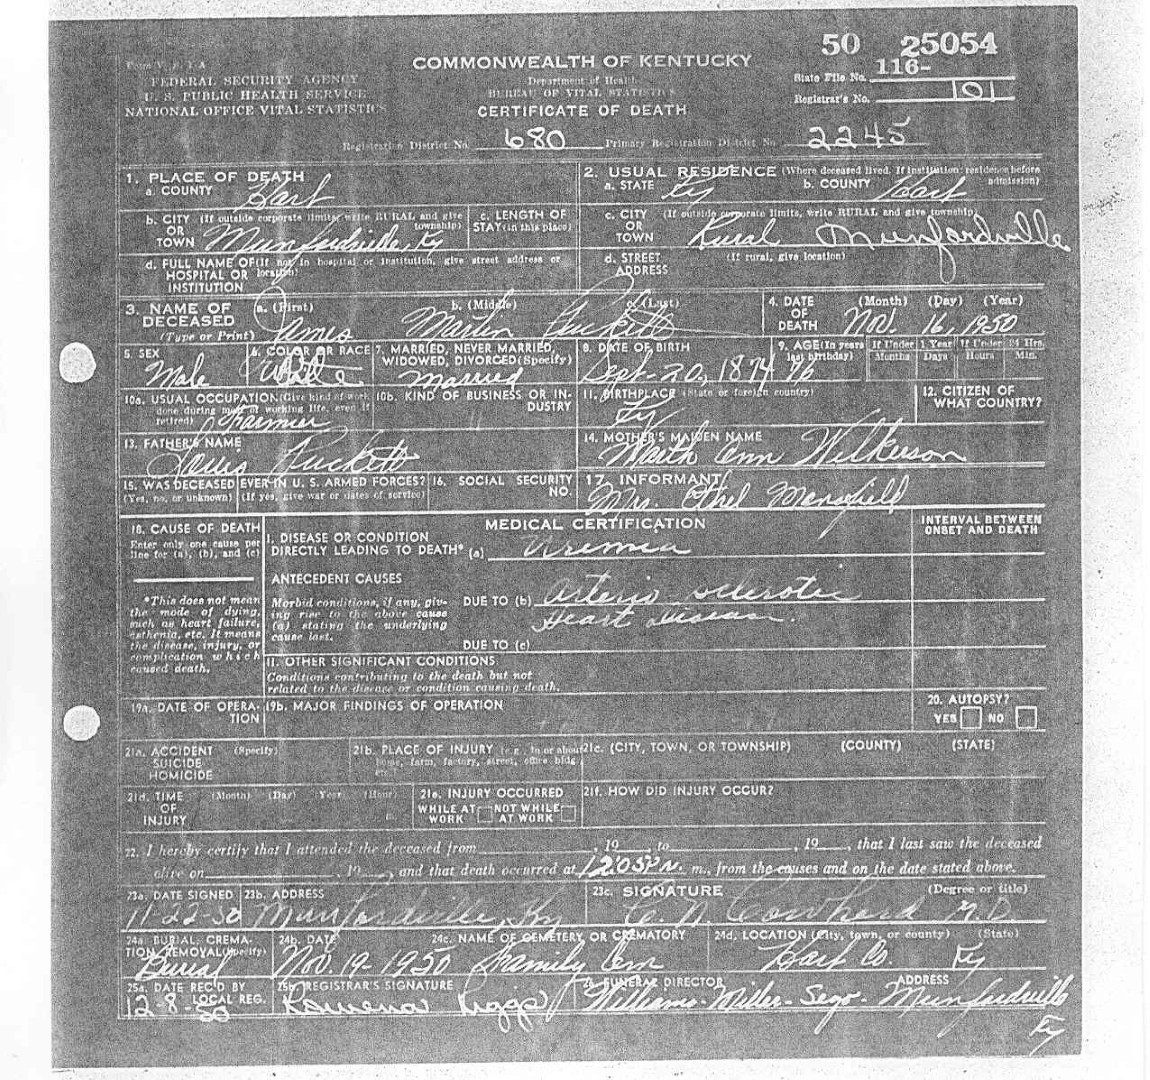 50 25054
Form V. S. 1-A
COMMONWEALTH OF KENTUCKY
State File No. 116-
FEDERAL SECURITY AGENCY
Department of Health
U. S. PUBLIC HEALTH SERVICE
BUREAU OF VITAL STATISTICS
Registrar's No. 101
NATIONAL OFFICE VITAL STATISTICS
CERTIFICATE OF DEATH
Registration District No. 680 Primary Registration District No. 2245
1. PLACE OF DEATH
a. COUNTY Hart
2. USUAL RESIDENCE (Where deceased lived. If institution: residence before admission)
a. STATE Ky b. COUNTY Hart
b. CITY (If outside corporate limits, write RURAL and give township)
OR
TOWN Munfordville, Ky
c. LENGTH OF STAY (in this place)
c. CITY (If outside corporate limits, write RURAL and give township)
OR
TOWN Rural Munfordville
d. FULL NAME OF (If not in hospital or institution, give street address or location)
HOSPITAL OR
INSTITUTION
d. STREET (If rural, give location)
ADDRESS
3. NAME OF DECEASED a. (First) b. (Middle) c. (Last)
(Type or Print) James Martin Puckett
4. DATE OF DEATH (Month) (Day) (Year)
Nov. 16, 1950
5. SEX
Male
6. COLOR OR RACE
White
7. MARRIED, NEVER MARRIED, WIDOWED, DIVORCED (Specify)
Married
8. DATE OF BIRTH
Sept-20, 1874
9. AGE (In years last birthday) If Under 1 Year If Under 24 Hrs.
Months Days Hours Min.
76
10a. USUAL OCCUPATION (Give kind of work done during most of working life, even if retired)
Farmer
10b. KIND OF BUSINESS OR INDUSTRY
11. BIRTHPLACE (State or foreign country)
Ky
12. CITIZEN OF WHAT COUNTRY?
13. FATHER'S NAME
Puckett
14. MOTHER'S MAIDEN NAME
Marth Ann Wilkerson
15. WAS DECEASED EVER IN U. S. ARMED FORCES?
(Yes, no, or unknown) (If yes, give war or dates of service)
16. SOCIAL SECURITY NO.
17. INFORMANT
Mrs. Ethel Mansfield
18. CAUSE OF DEATH
Enter only one cause per line for (a), (b), and (c)
MEDICAL CERTIFICATION
INTERVAL BETWEEN ONSET AND DEATH
I. DISEASE OR CONDITION
DIRECTLY LEADING TO DEATH* (a) Uremia
*This does not mean the mode of dying, such as heart failure, asthenia, etc. It means the disease, injury, or complication which caused death.
ANTECEDENT CAUSES
Morbid conditions, if any, giving rise to the above cause (a) stating the underlying cause last.
DUE TO (b) Arterio sclerotic
Heart Disease.
DUE TO (c)
II. OTHER SIGNIFICANT CONDITIONS
Conditions contributing to the death but not
related to the disease or condition causing death.
19a. DATE OF OPERATION
19b. MAJOR FINDINGS OF OPERATION
20. AUTOPSY?
YES NO
21a. ACCIDENT (Specify)
SUICIDE
HOMICIDE
21b. PLACE OF INJURY (e.g., in or about home, farm, factory, street, office bldg., etc.)
21c. (CITY, TOWN, OR TOWNSHIP) (COUNTY) (STATE)
21d. TIME (Month) (Day) (Year) (Hour)
OF
INJURY m.
21e. INJURY OCCURRED
WHILE AT WORK NOT WHILE AT WORK
21f. HOW DID INJURY OCCUR?
22. I hereby certify that I attended the deceased from , 19 , to , 19 , that I last saw the deceased
alive on , 19 , and that death occurred at 12:05 P m., from the causes and on the date stated above.
23a. DATE SIGNED
11-22-50
23b. ADDRESS
Munfordville, Ky
23c. SIGNATURE (Degree or title)
C. N. Cowherd M.D.
24a. BURIAL, CREMATION, REMOVAL (Specify)
Burial
24b. DATE
Nov. 19-1950
24c. NAME OF CEMETERY OR CREMATORY
Family Cem
24d. LOCATION (City, town, or county) (State)
Hart Co. Ky
25a. DATE REC'D BY LOCAL REG.
12-8-50
25b. REGISTRAR'S SIGNATURE
26. FUNERAL DIRECTOR ADDRESS
Williams-Miller-Sego-Munfordville
Ky